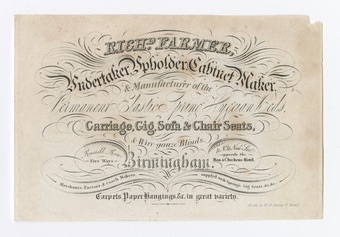 RICHD. FARMER,
Undertaker, Upholder, Cabinet Maker,
& Manufacturer of the
Permanent Elastic Beds,
Carriage, Gig, Sofa & Chair Seats,
& Wire gauze Blinds.
Russell Row
Five Ways
opposite the
Hen & Chickens Hotel.
Birmingham.
Merchants, Factors & Coach Makers
supplied with Springs, Gig Seats, &c. &c.
Carpets, Paper Hangings &c. in great variety.